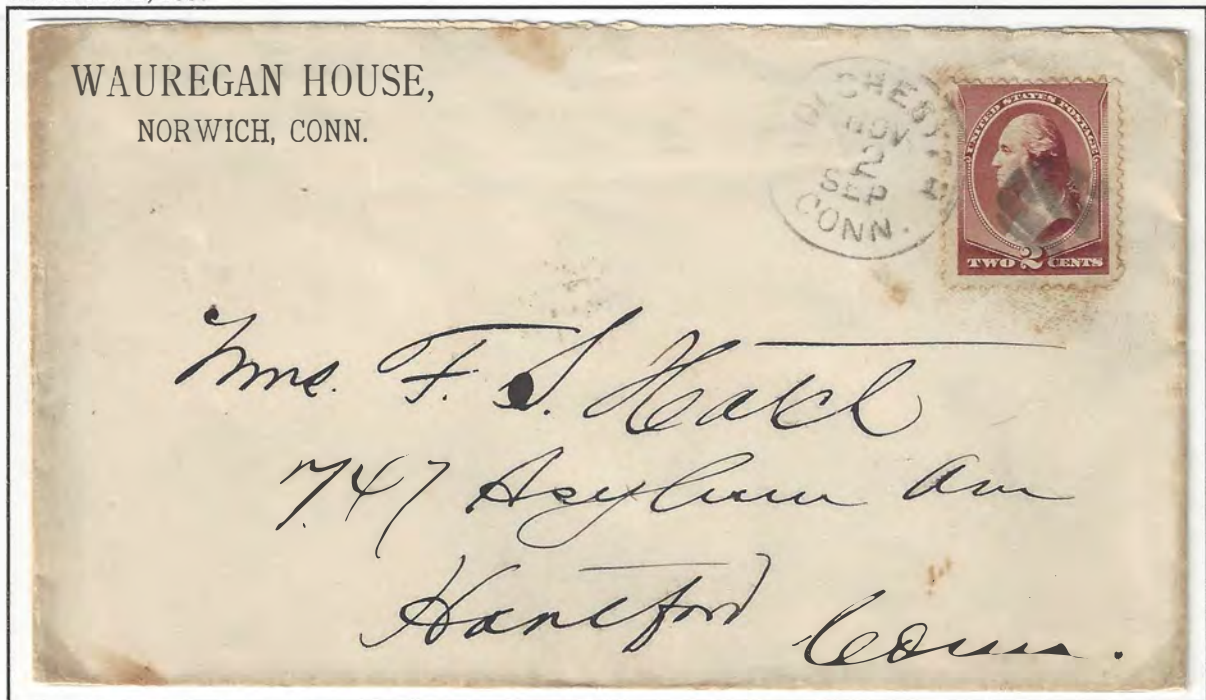 WAUREGAN HOUSE,
NORWICH, CONN.
COLCHESTER
NOV
2
SEP
CONN.
UNITED STATES POSTAGE
TWO 2 CENTS
Mrs. F. S. Hatch
747 Asylum Ave
Hartford Conn.